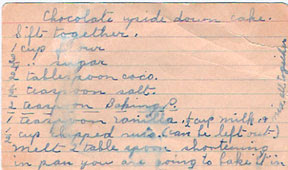 Chocolate upside down cake.
Sift together.
cup flour
" sugar
tablespoon coco.
teaspoon salt.
teaspoon Baking P.
teaspoon vanilla. cup milk
cup chopped nuts (can be left out)
melt 2 table spoon shortening
in pan you are going to bake it in
mix all together